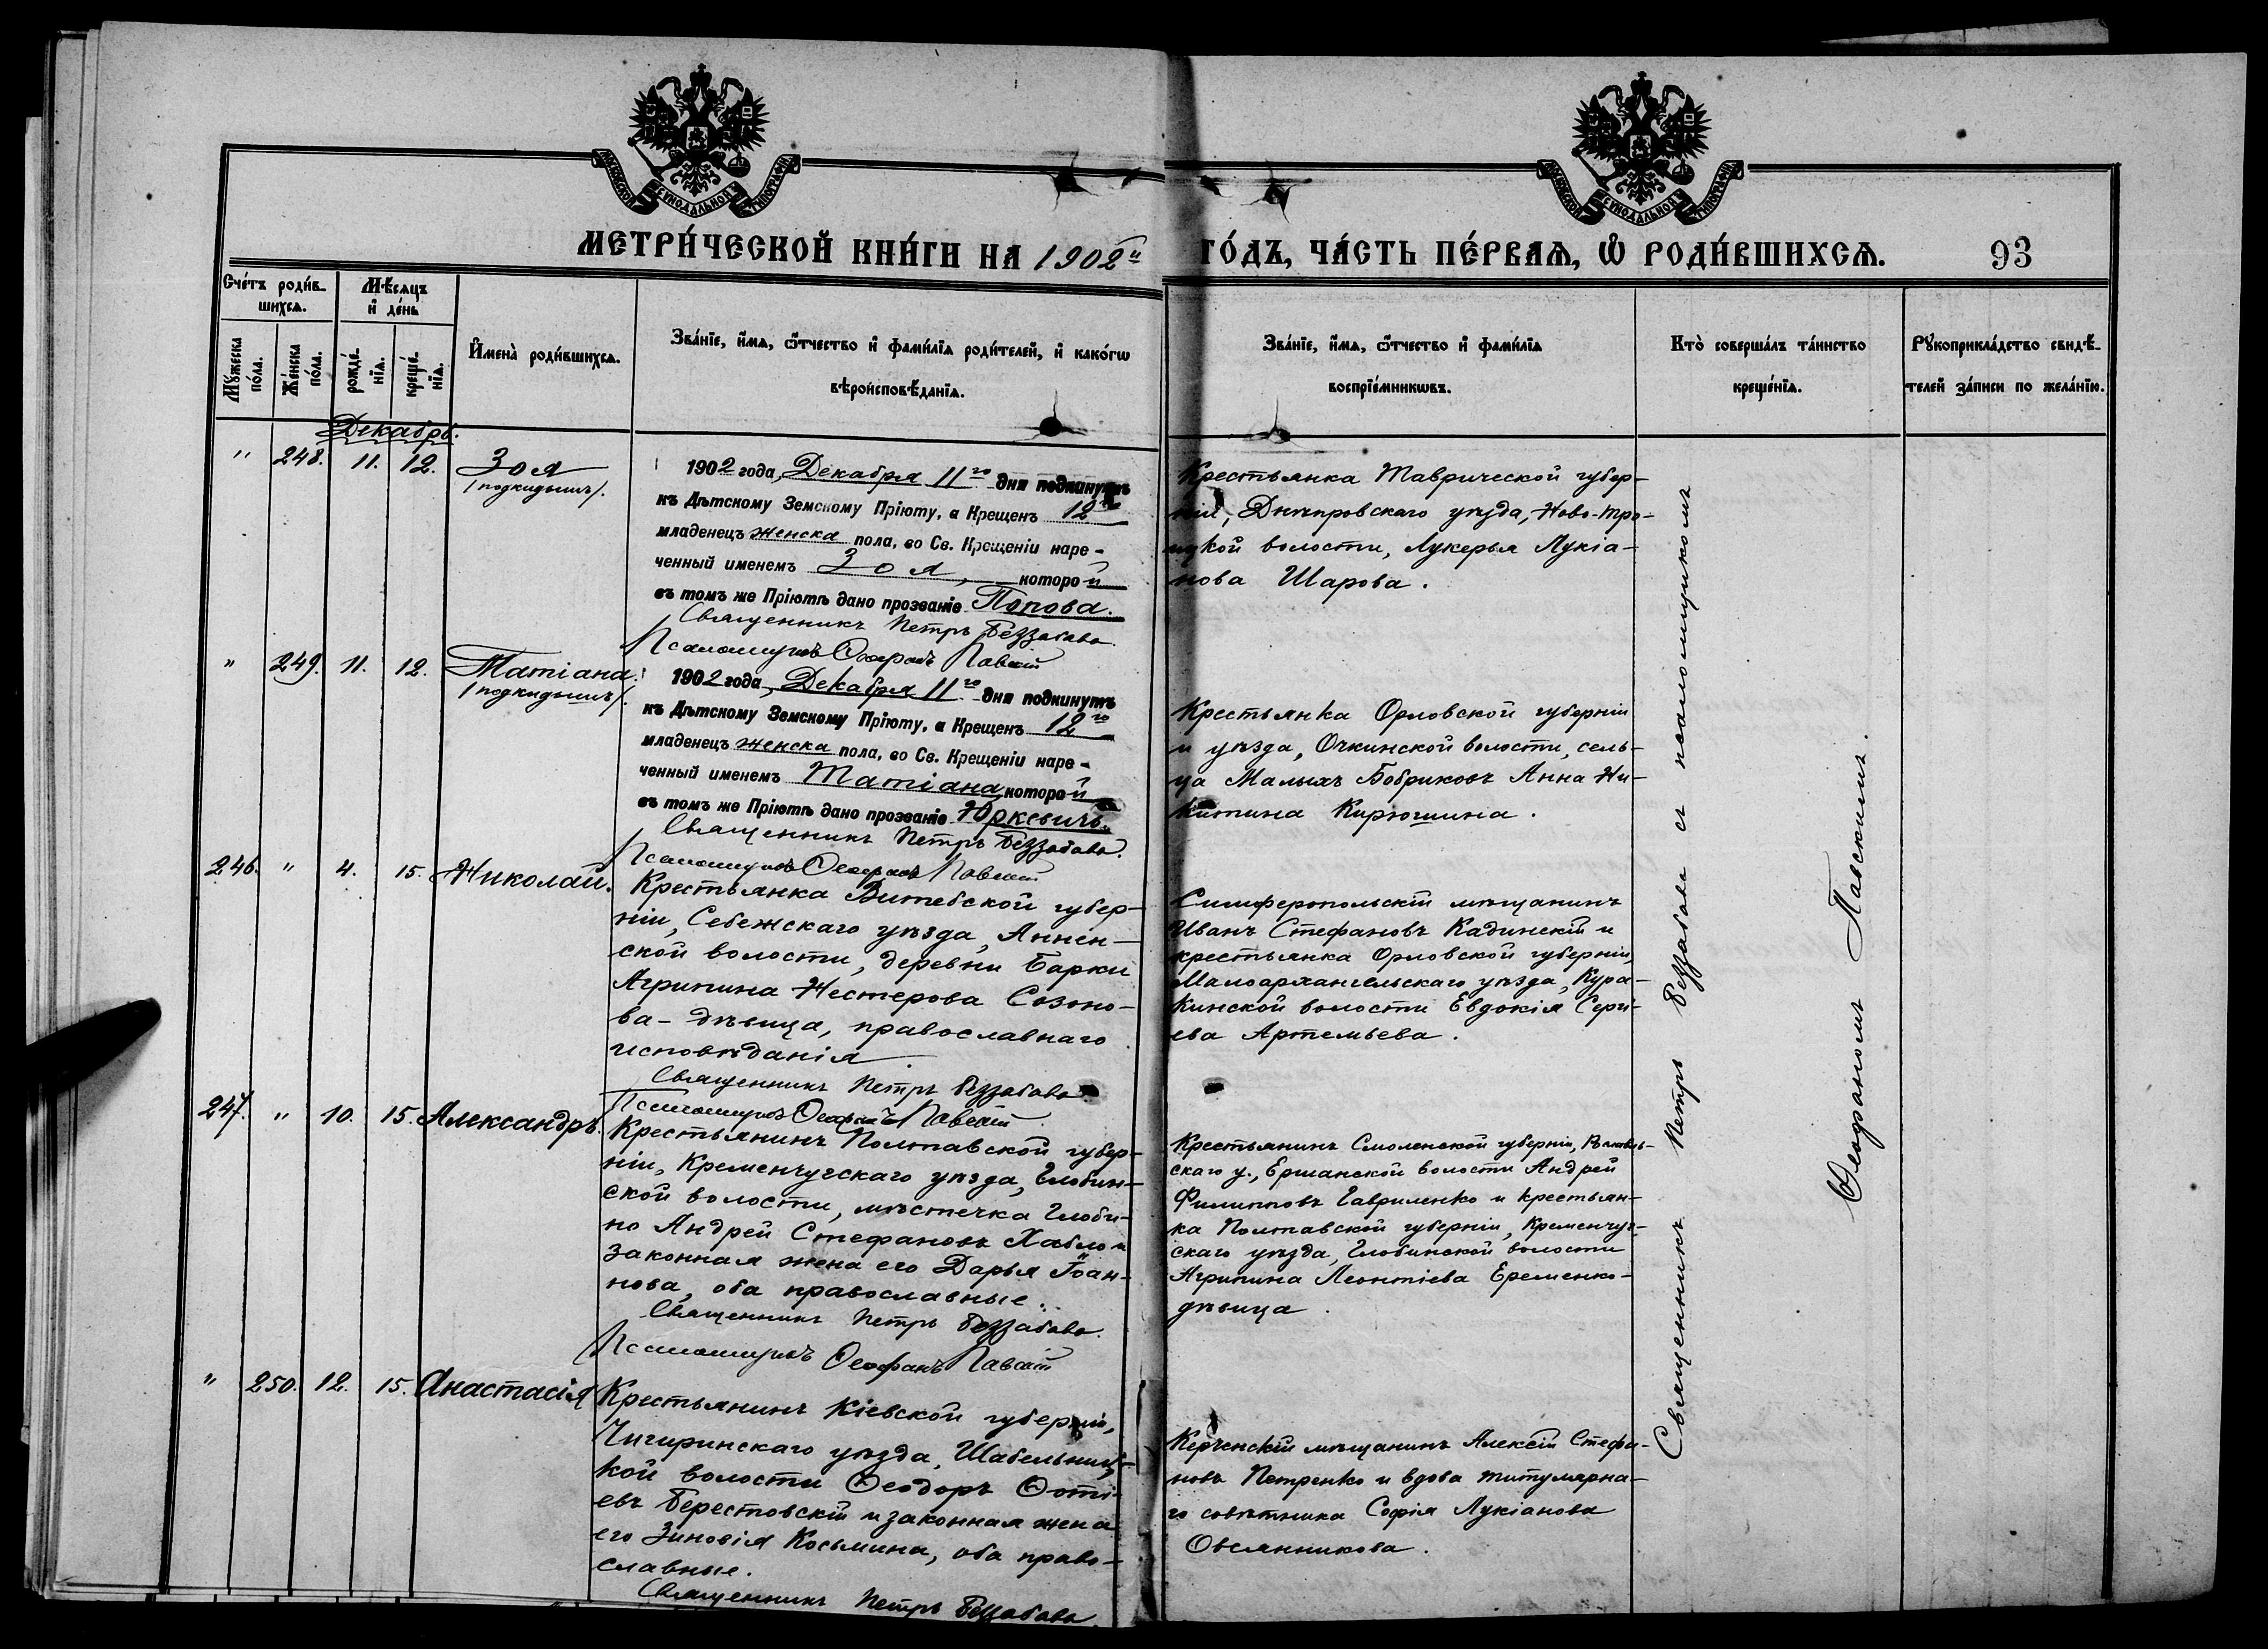 МОСКОВСКОЙ СѴНОДАЛЬНОЙ ТИПОГРАФІИ
МОСКОВСКОЙ СѴНОДАЛЬНОЙ ТИПОГРАФІИ
МЕТРИ́ЧЕСКОЙ КНИ́ГИ НА 1902й
ГО́ДЪ, ЧА́СТЬ ПЕ́РВАѦ, Ѡ РОДИ́ВШИХСѦ.
93
Сче́тъ роди́в-
шихсѧ.
Мѣ́сѧцъ
и де́нь
Мꙋ́жеска по́ла.
Же́нска по́ла.
рожде́-
нїѧ.
креще́-
нїѧ.
Имена̀ роди́вшихсѧ.
Зва́нїе, и́мѧ, ѻ҆́тчество и҆ фами́лїѧ роди́телей, и҆ како́гѡ
вѣроисповѣ́данїѧ.
Зва́нїе, и́мѧ, ѻ҆́тчество и҆ фами́лїѧ
воспрїе́мникѡвъ.
Кто̀ соверша́лъ та́инство
креще́нїѧ.
Рꙋкоприкла́дство свидѣ́-
телей за́писи по жела́нїю.
Декабрь.
" 248. 11. 12. Зоя
/подкидышъ/.
1902 года, Декабря 11го дня подкинутъ
къ Дѣтскому Земскому Пріюту, а Крещенъ 12го
младенецъ женска пола, во Св. Крещеніи наре-
ченный именемъ Зоя, которой
въ томъ же Пріютѣ дано прозваніе Попова.
Священникъ Петръ Беззабава
Псаломщикъ Ѳеофанъ Павскій
Крестьянка Таврической губер-
ніи, Днѣпровскаго уѣзда, Ново-Тро-
ицкой волости, Лукерья Лукіа-
нова Шарова.
" 249. 11. 12. Татіана
/подкидышъ/.
1902 года, Декабря 11го дня подкинутъ
къ Дѣтскому Земскому Пріюту, а Крещенъ 12го
младенецъ женска пола, во Св. Крещеніи наре-
ченный именемъ Татіана которой
въ томъ же Пріютѣ дано прозваніе Юркевичъ.
Священникъ Петръ Беззабава.
Псаломщикъ Ѳеофанъ Павскій
Крестьянка Орловской губерніи
и уѣзда, Очкинской волости, сель-
ца Малыхъ Бобриковъ Анна Ни-
китина Кирюшина.
246. " 4. 15. Николай.
Крестьянка Витебской губер-
ніи, Себежскаго уѣзда, Аннен-
ской волости, деревни Барки
Агрипина Нестерова Созоно-
ва - дѣвица, православнаго
исповѣданія
Священникъ Петръ Беззабава
Псаломщикъ Ѳеофанъ Павскій
Симферопольскій мѣщанинъ
Иванъ Стефановъ Кадинскій и
крестьянка Орловской губерніи,
Малоархангельскаго уѣзда, Кура-
кинской волости Евдокія Серге-
ева Артемьева.
247. " 10. 15. Александръ.
Крестьянинъ Полтавской губер-
ніи, Кременчугскаго уѣзда, Глобин-
ской волости, мѣстечка Глоби-
но Андрей Стефановъ Хабло и
законная жена его Дарья Іоан-
нова, оба православные.
Священникъ Петръ Беззабава.
Псаломщикъ Ѳеофанъ Павскій
Крестьянинъ Смоленской губерніи,
скаго у., Ершанской волости Андрей
Филипповъ Гавриленко и крестьян-
ка Полтавской губерніи, Кременчуг-
скаго уѣзда, Глобинской волости
Агрипина Леонтіева Еременко -
дѣвица.
" 250. 12. 15. Анастасія
Крестьянинъ Кіевской губерніи,
Чигиринскаго уѣзда, Шабельниц-
кой волости Ѳеодоръ Ѳоті-
евъ Берестовскій и законная жена
его Зиновія Косьмина, оба право-
славные.
Священникъ Петръ Беззабава.
Керченскій мѣщанинъ Алексій Стефа-
новъ Петренко и вдова титулярна-
го совѣтника Софія Лукіанова
Овсянникова.
Священникъ Петръ Беззабава съ псаломщикомъ
Ѳеофаномъ Павскимъ.